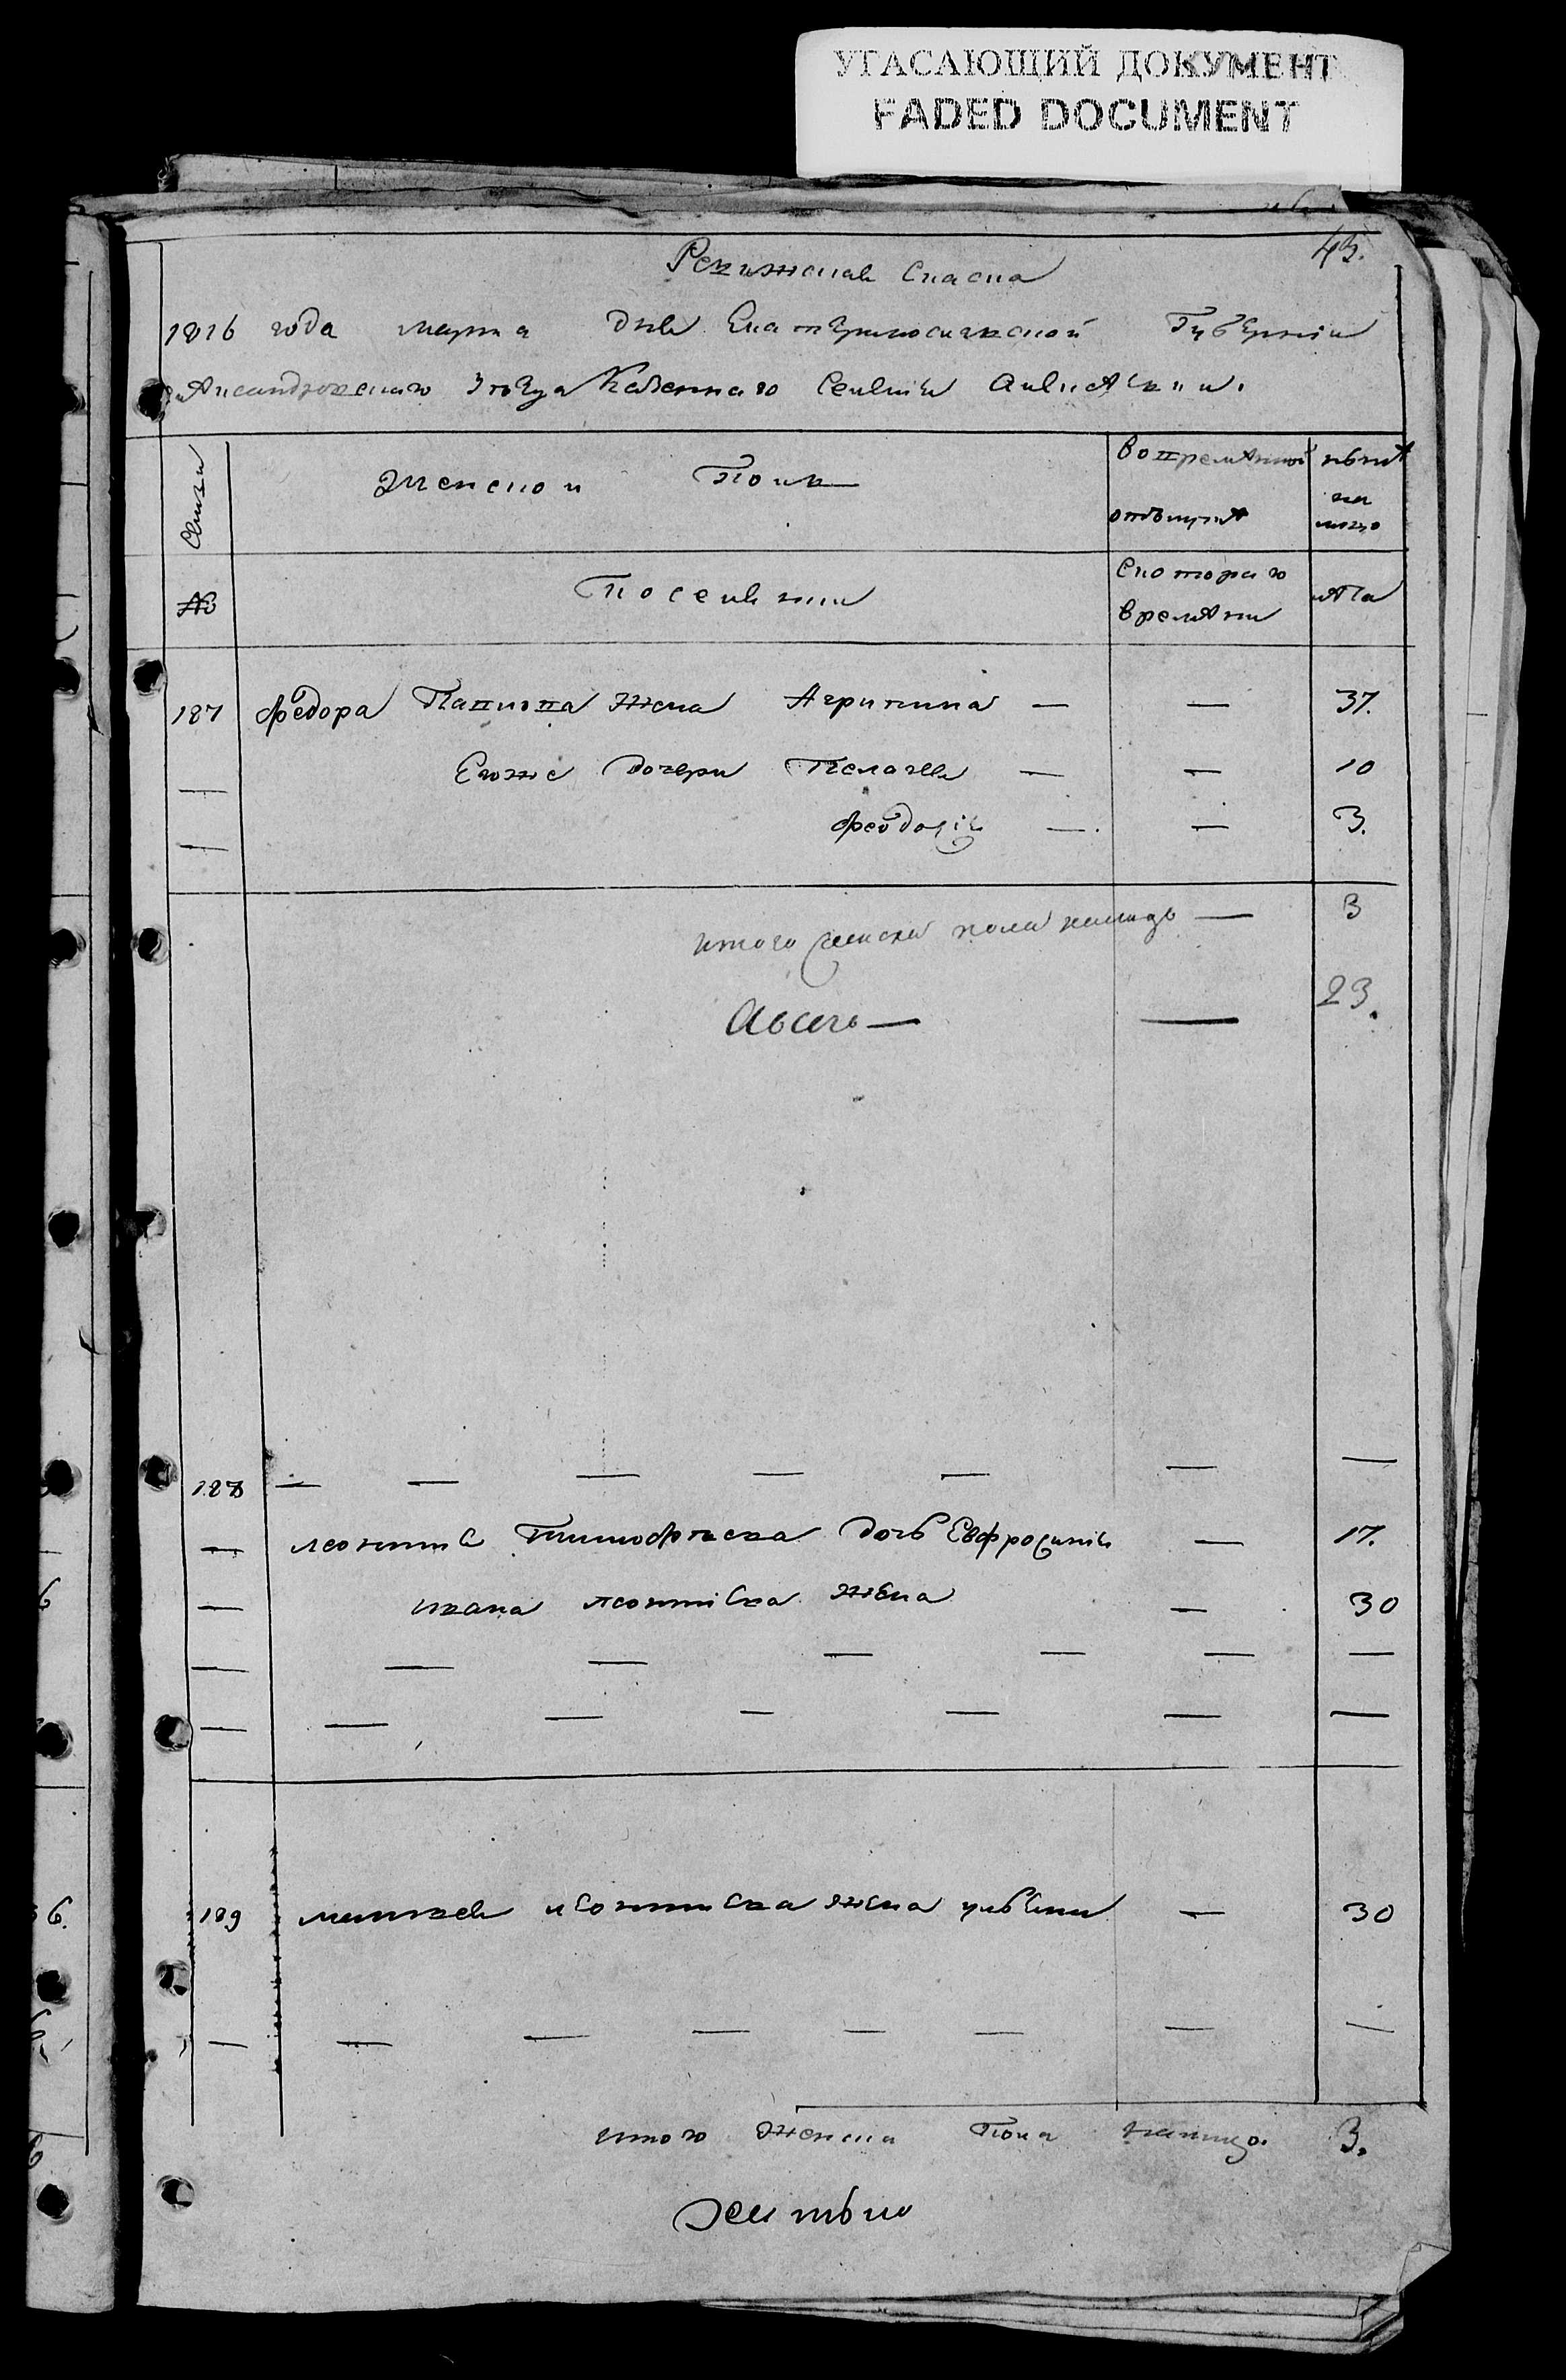 УГАСАЮЩИЙ ДОКУМЕНТ
FADED DOCUMENT
43.
Ревижская Скаска
1816 года марта дня Екатеринославской Губернии
Александровскаго уезда Казеннаго Селения
Семьи
женской Пол
во временной
отълучке
ныне
на
лицо
№
Поселяни
Скотораго
времяни
лета
187 Федора Павлова жена Агрипина — — 37.
Егоже дочери Пелагея — — 10
Феодосія — — 3.
итого женска пола налицо — 3
Авсего — — 23.
188 — — — — — — —
— леонтия Тимофеева дочь Евфросинія — 17.
— ивана леонтіева жена — 30
— — — — — — —
— — — — — — —
189 матвея леонтиева жена — 30
— — — — — — — —
итого женска Пола налицо. 3.